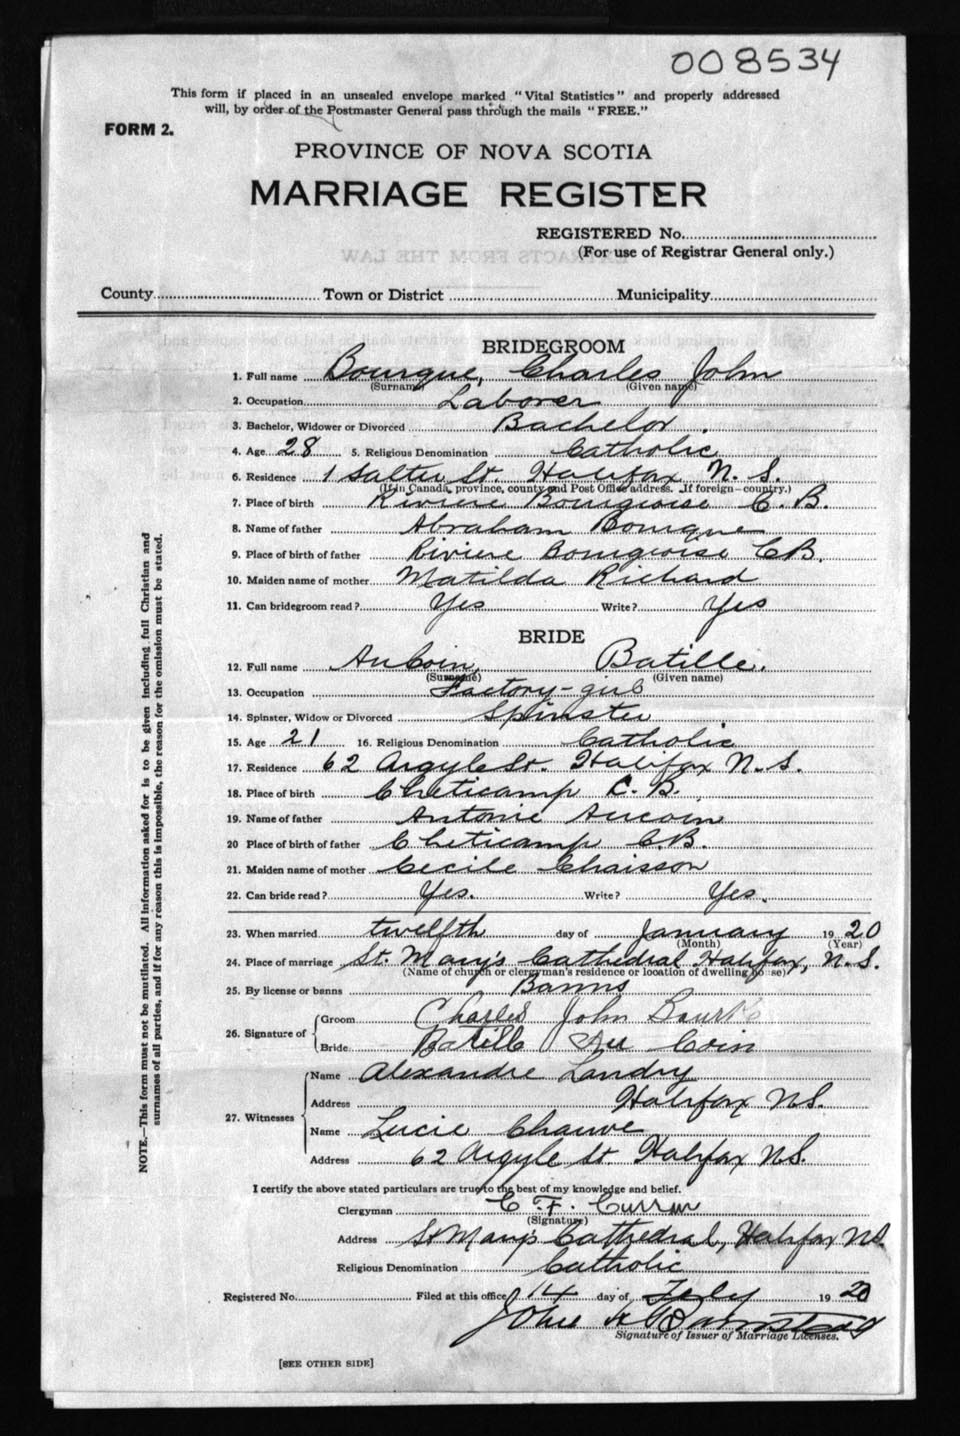 008534
This form if placed in an unsealed envelope marked "Vital Statistics" and properly addressed
will, by order of the Postmaster General pass through the mails "FREE."
FORM 2.
PROVINCE OF NOVA SCOTIA
MARRIAGE REGISTER
REGISTERED No.
(For use of Registrar General only.)
EXTRACTS FROM THE LAW
County Town or District Municipality
BRIDEGROOM
1. Full name Bourque, Charles John
(Surname) (Given name)
2. Occupation Laborer
3. Bachelor, Widower or Divorced Bachelor.
4. Age 28 5. Religious Denomination Catholic
6. Residence 1 Salter St. Halifax N. S.
(If in Canada, province, county and Post Office address. If foreign—country.)
7. Place of birth Riviere Bourgeoise C. B.
8. Name of father Abraham Bourque
9. Place of birth of father Riviere Bourgeoise C B.
10. Maiden name of mother Matilda Richard
11. Can bridegroom read? Yes Write? Yes
BRIDE
12. Full name AuCoin, Batille.
(Surname) (Given name)
13. Occupation Factory-girl
14. Spinster, Widow or Divorced Spinster
15. Age 21 16. Religious Denomination Catholic
17. Residence 62 Argyle St. Halifax N. S.
18. Place of birth Cheticamp C. B.
19. Name of father Antonie Aucoin
20 Place of birth of father Cheticamp C.B.
21. Maiden name of mother Cecile Chaisson
22. Can bride read? Yes. Write? Yes.
23. When married twelfth day of January 19 20
(Month) (Year)
24. Place of marriage St. Mary's Cathedral Halifax, N. S.
(Name of church or clergyman's residence or location of dwelling house)
25. By license or banns Banns
26. Signature of Groom Charles John Bourk
Bride Batille Au Coin
27. Witnesses Name Alexandre Landry
Address Halifax N S.
Name Lucie Chauve
Address 62 Argyle St. Halifax N S.
I certify the above stated particulars are true to the best of my knowledge and belief.
Clergyman C. F. Curran
(Signature)
Address St Mary's Cathedral, Halifax N S.
Religious Denomination Catholic
Registered No. Filed at this office 14 day of Feby 19 20
John
Signature of Issuer of Marriage Licenses.
[SEE OTHER SIDE]
NOTE.—This form must not be mutilated. All information asked for is to be given including full Christian and
surnames of all parties, and if for any reason this is impossible, the reason for the omission must be stated.